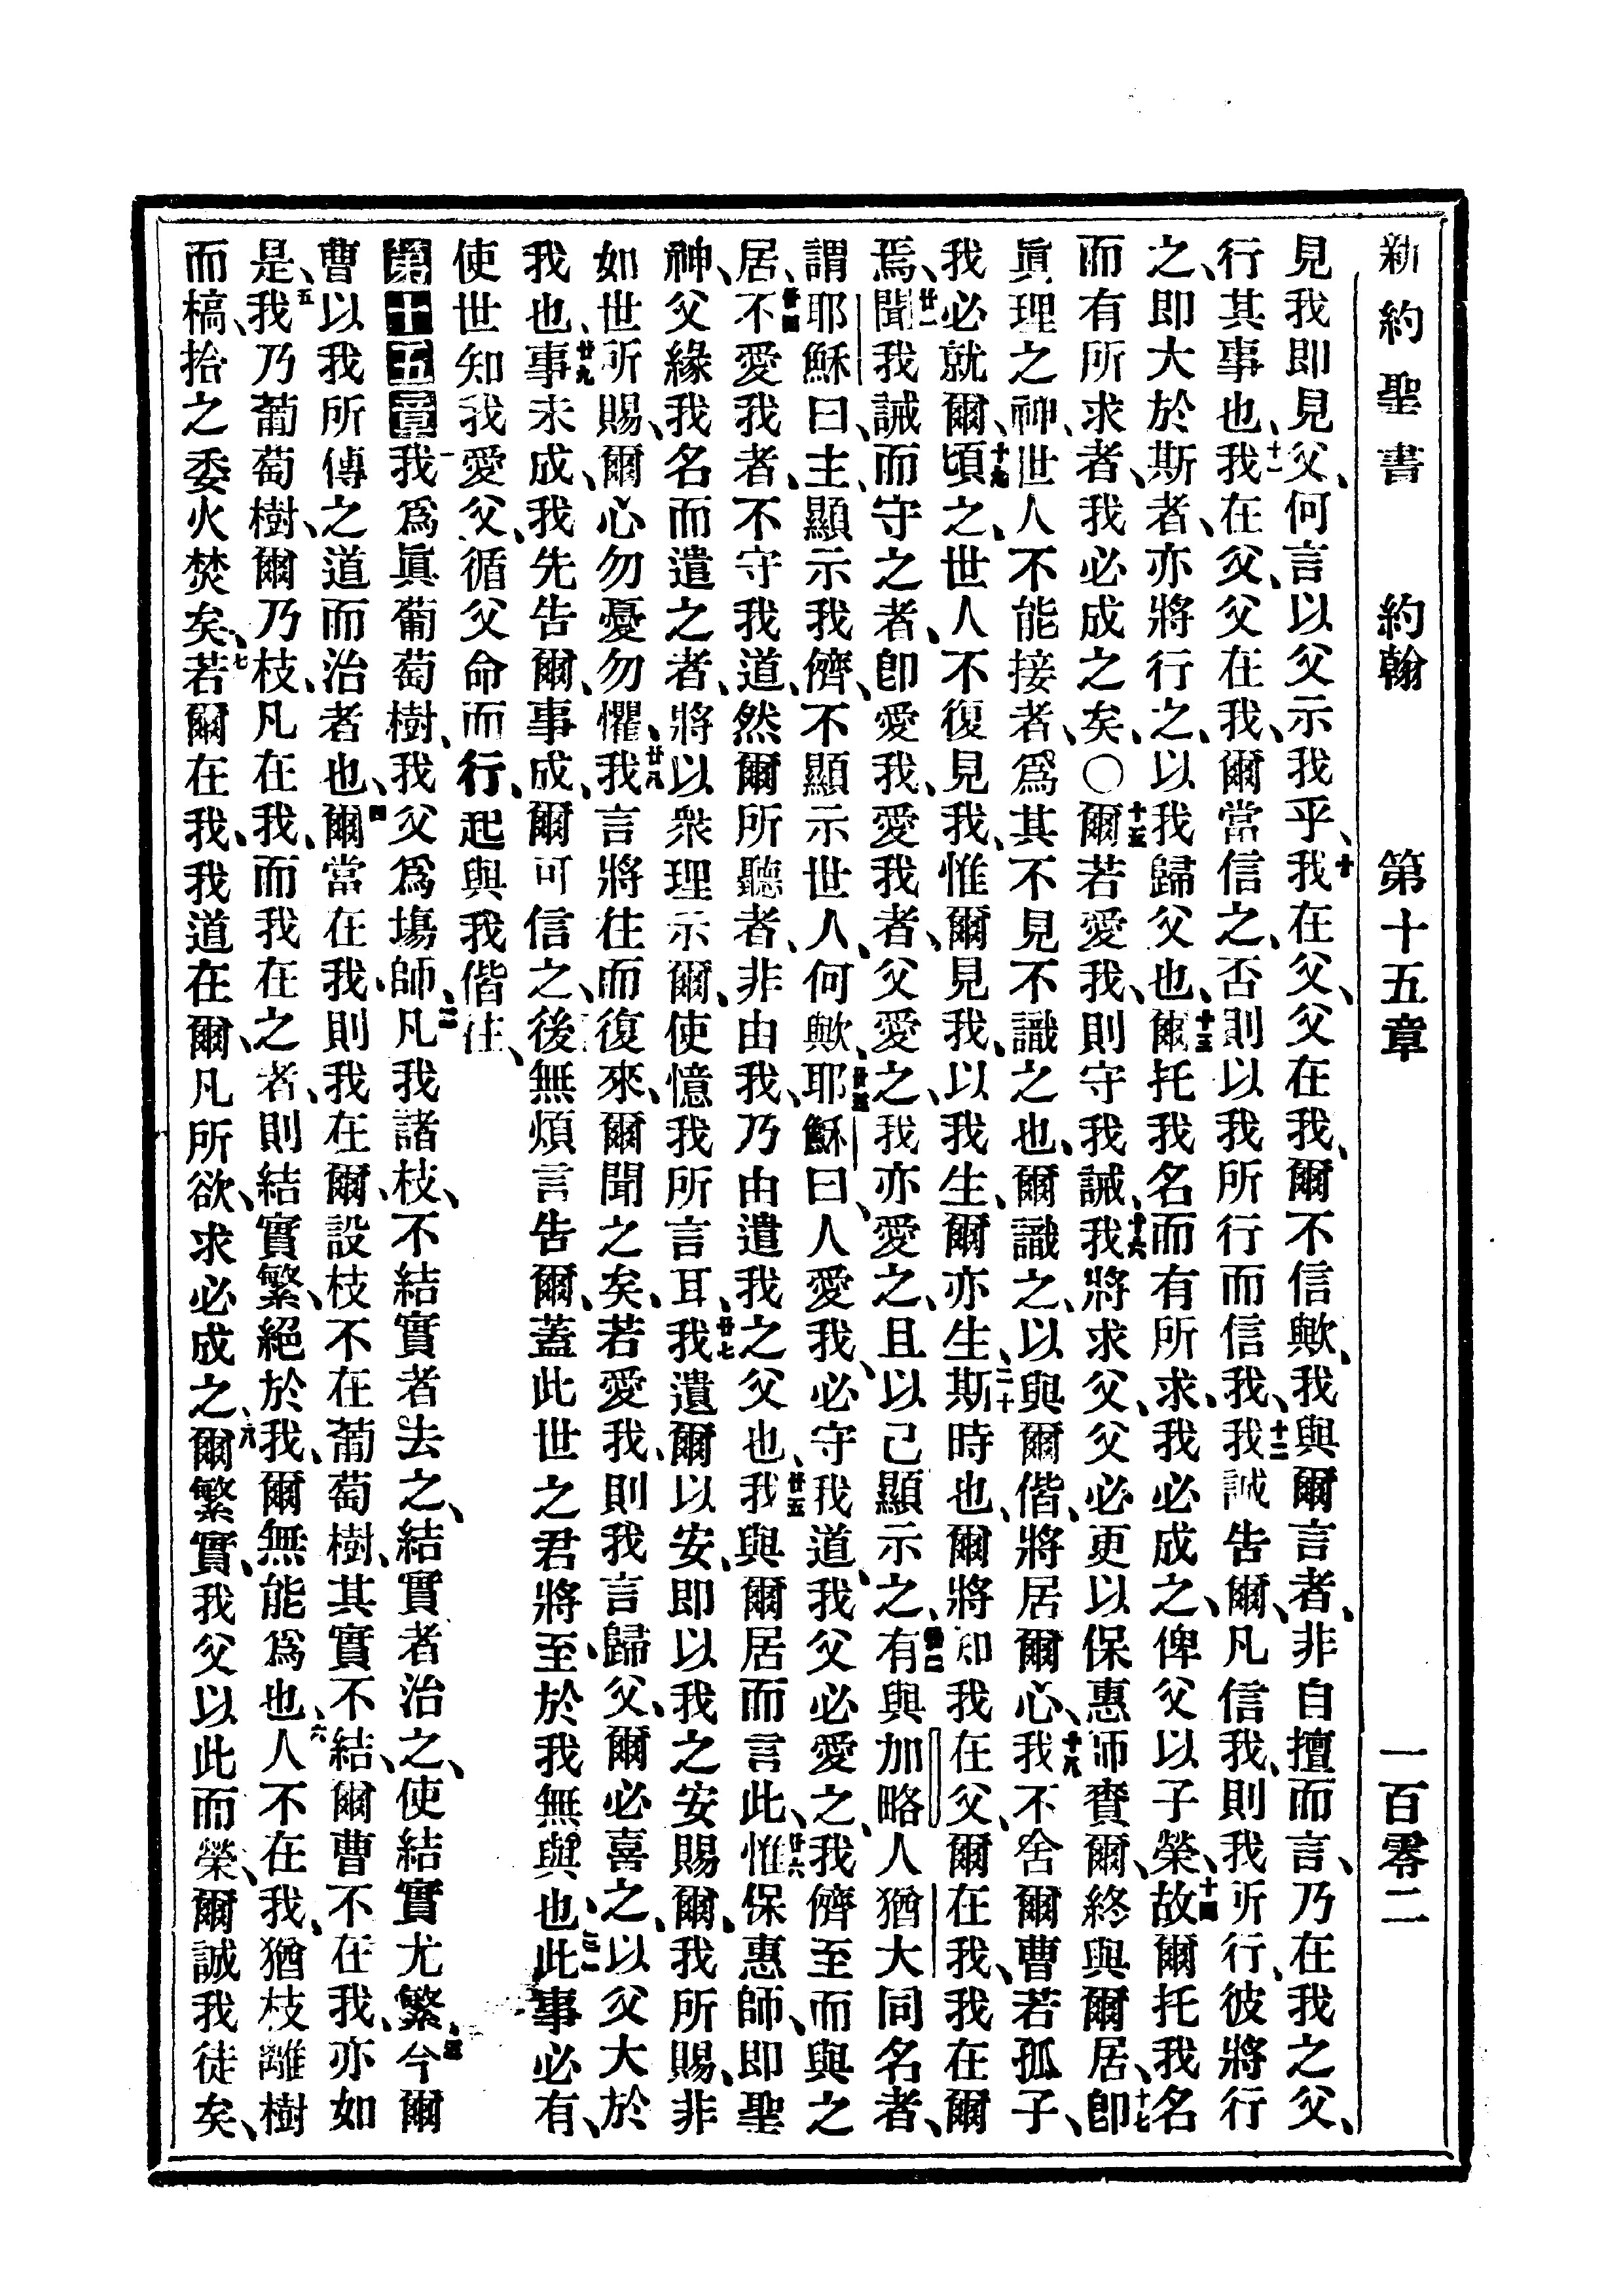 新約聖書 約翰 第十五章 一百零二
見我即見父、何言以父示我乎、十我在父、父在我、爾不信歟、我與爾言者、非自擅而言、乃在我之父、
行其事也、十一我在父、父在我、爾當信之、否則以我所行而信我、十二我誠告爾、凡信我、則我所行、彼將行
之、即大於斯者、亦將行之、以我歸父也、十三爾托我名而有所求、我必成之、俾父以子榮、十四故爾托我名
而有所求者、我必成之矣、〇十五爾若愛我、則守我誡、十六我將求父、父必更以保惠師賚爾、終與爾居、十七即
眞理之神、世人不能接者、爲其不見不識之也、爾識之、以與爾偕、將居爾心、十八我不舍爾曹若孤子、
我必就爾、十九頃之、世人不復見我、惟爾見我、以我生、爾亦生、二十斯時也、爾將知我在父、爾在我、我在爾
焉、廿一聞我誡而守之者、卽愛我、愛我者、父愛之、我亦愛之、且以己顯示之、廿二有與加略人猶大同名者、
謂耶穌曰、主、顯示我儕、不顯示世人、何歟、廿三耶穌曰、人愛我、必守我道、我父必愛之、我儕至而與之
居、廿四不愛我者、不守我道、然爾所聽者、非由我、乃由遣我之父也、廿五我與爾居而言此、廿六惟保惠師、即聖
神、父緣我名而遣之者、將以衆理示爾、使憶我所言耳、廿七我遺爾以安、即以我之安賜爾、我所賜、非
如世所賜、爾心勿憂勿懼、廿八我言將往而復來、爾聞之矣、若愛我、則我言歸父、爾必喜之、以父大於
我也、廿九事未成、我先告爾、事成、爾可信之、後無煩言告爾、蓋此世之君將至、於我無與也、三一此事必有、
使世知我愛父、循父命而行、起與我偕往、
第十五章一我爲眞葡萄樹、我父爲塲師、二凡我諸枝、不結實者去之、結實者治之、使結實尤繁、三今爾
曹以我所傳之道而治者也、四爾當在我、則我在爾、設枝不在葡萄樹、其實不結、爾曹不在我、亦如
是、五我乃葡萄樹、爾乃枝、凡在我、而我在之者、則結實繁、絕於我、爾無能爲也、六人不在我、猶枝離樹
而槁、拾之委火焚矣、七若爾在我、我道在爾、凡所欲、求必成之、八爾繁實、我父以此而榮、爾誠我徒矣、